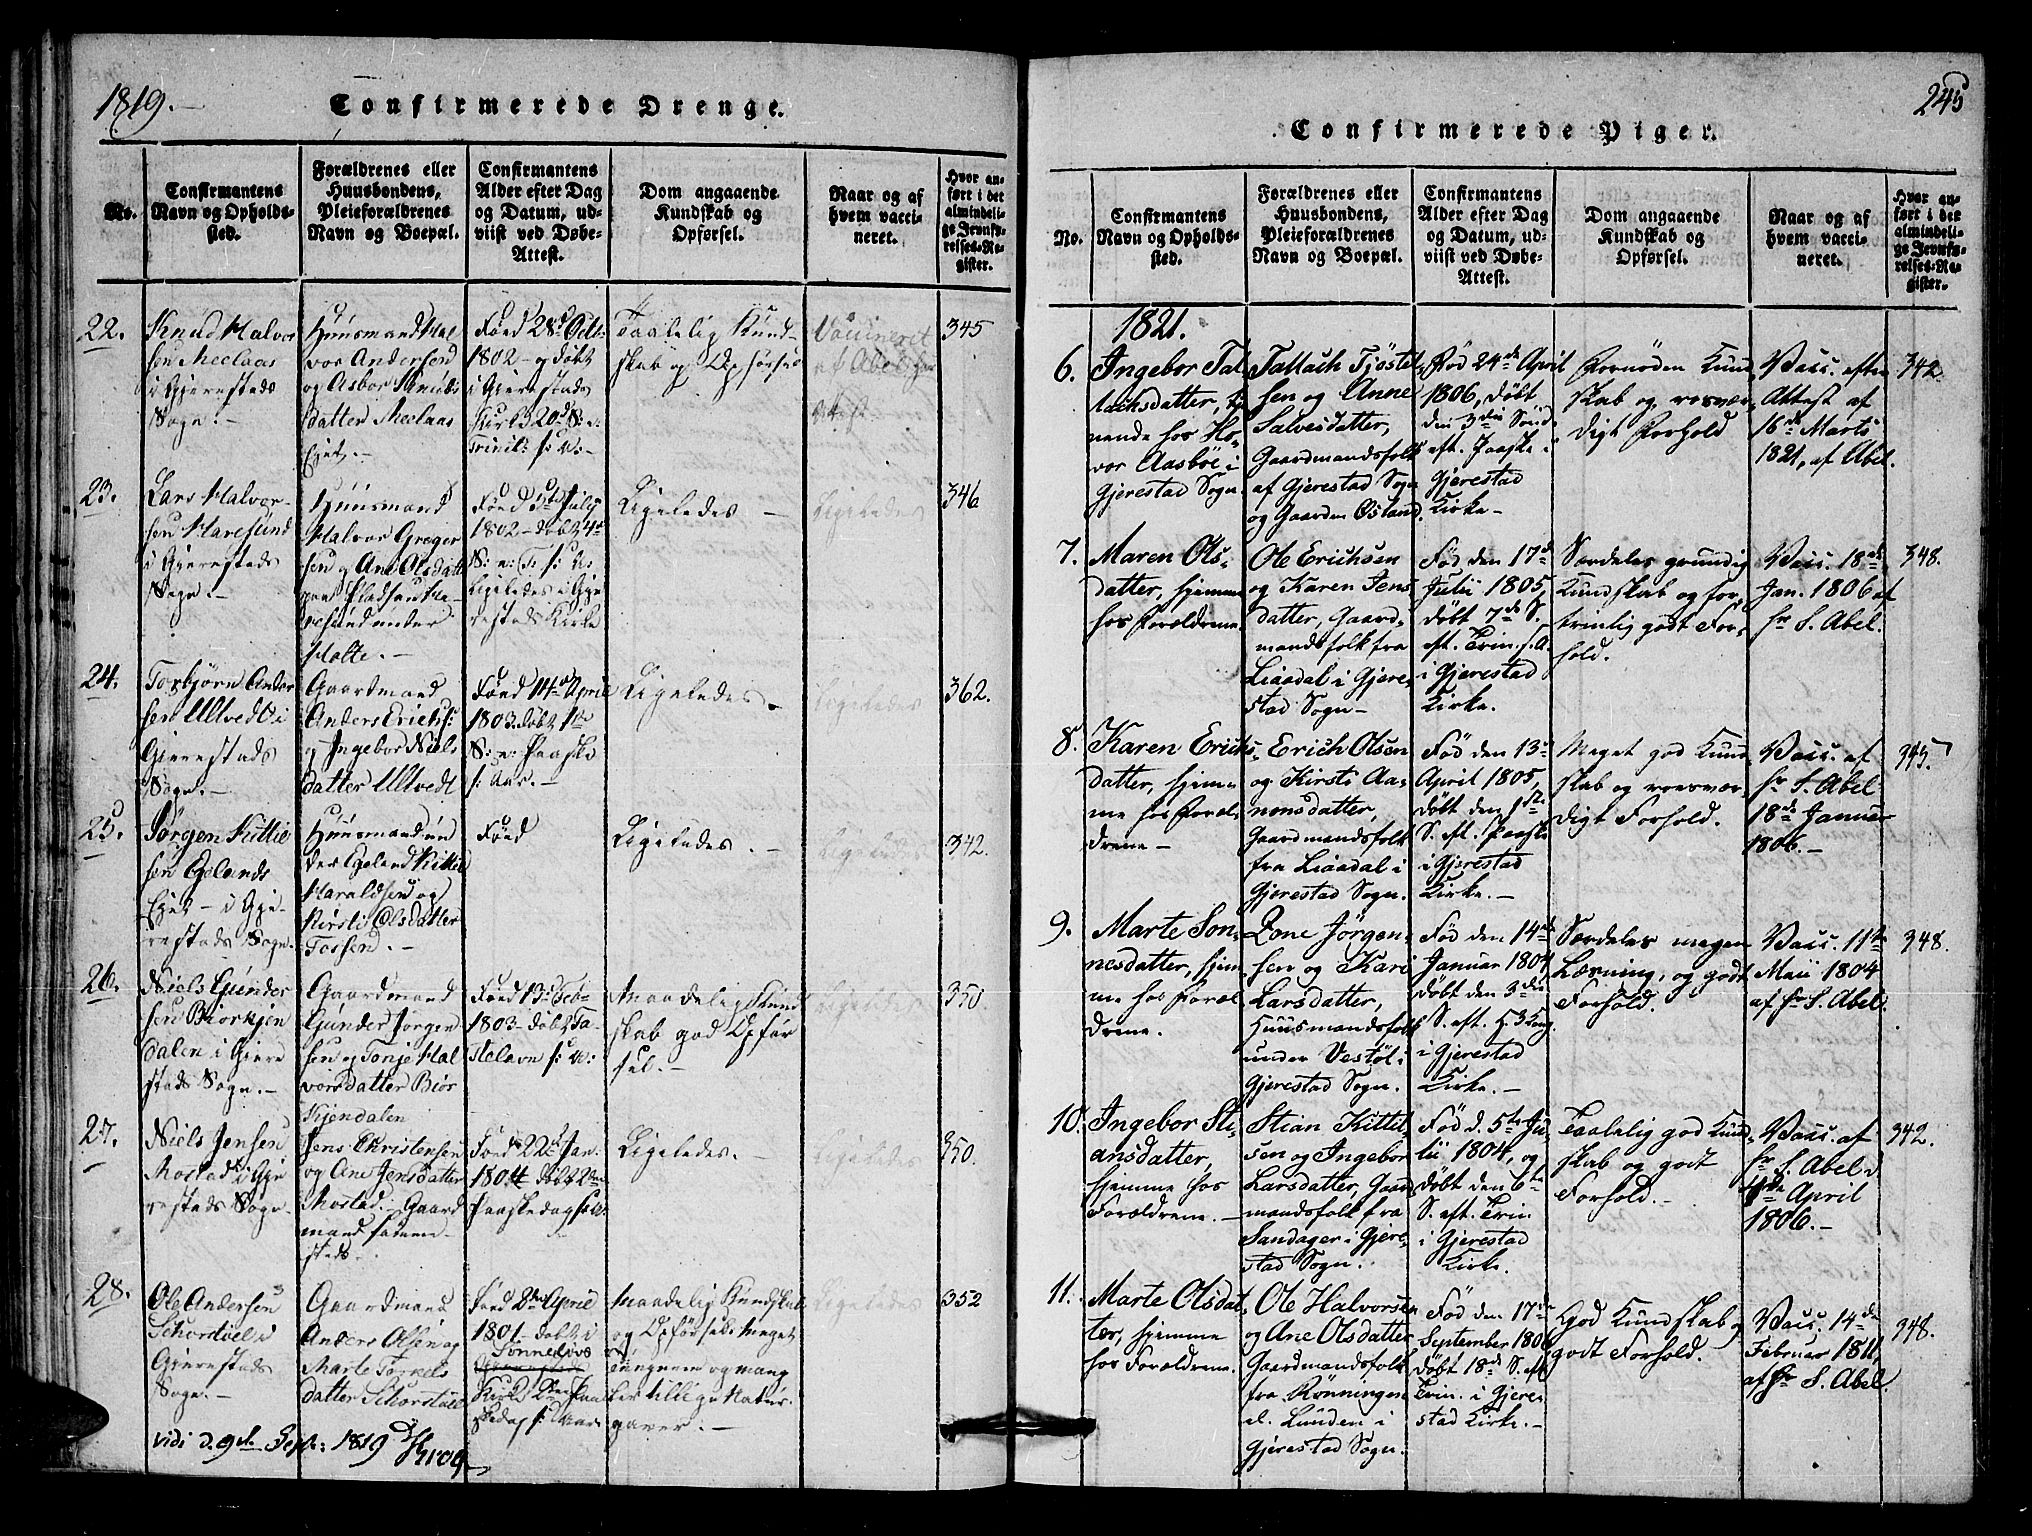 1819.
Confirmerede Drenge.
No.
Confirmantens
Navn og Opholds-
sted.
Forældrenes eller
Huusbondens,
Pleieforældrenes
Navn og Boepæl.
Confirmantens
Alder efter Dag
og Datum, ud-
viist ved Døbe-
Attest.
Dom angaaende
Kundskab og
Opførsel.
Naar og af
hvem vacci-
neret.
Hvor an-
ført i det
almindeli-
ge Jevnfø-
relses-Re-
gister.
22.
Knud Halvor
sen Meelaas
i Gjerestads
Sogn.-
Huusmand Hal
vor Andersen
og Asbor Knuds
datter Meelaas
Ejet.-
Føed 28d Octr
1802 - og døbt
i Gjerestads
Kirke 20d S: e:
Trinit: s: A:-
Taalelig Kund
skab og Opførsel
Vaccineret
af Abel
345
23.
Lars Halvor-
sen Haresund
i Gjerestads
Sogn.-
Huusmand
Halvor Greger
sen og Ane Olsdatt
paa Pladsen Ha-
resund under
Holte.-
Føed d July
1802 - døbt 4d
S: e: T: s: A:
Ligeledes i Gje
restads Kirke
Ligeledes -
Ligeledes
346
24.
Torbjørn Ander
sen Ulltvedt i
Gjerestads
Sogn.-
Gaardmand
Anders Erichs:
og Ingebor Niels
datter Ulltvedt
Føed 14de April
1803. døbt 1te
S: e: Paaske
s: Aar.-
Ligeledes.
Ligeledes
362.
25.
Jørgen Kittil
sen Egelands
Ejet - i Gje-
restads Sogn.
Huusmand un
der Egeland Kittil
Haraldsen og
Kirsti Olsdatter
Tossen.-
Føed
Ligeledes.-
Ligeledes
342.
26.
Niels Gunder
sen Biørkjen
dalen i Gjere
stads Sogn.-
Gaardmand
Gunder Jørgen
sen og Tonje Hal
vorsdatter Biør
Kjendalen
Føed 13d Feb-
1803 - døbt Fa-
stelavn s: A:
Maadelig Kund
skab god Opfør
sel.-
Ligeledes
350.
27.
Niels Jensen
Mostad i Gje
restads Sogn-
Jens Christensen
og Ane Jensdatter
Mostad. Gaard
mand samme-
steds.
Føed 22d Jan.
1804 døbt 2den
Paaskedag s: A:
Ligeledes.-
Ligeledes
350.
28.
Ole Andersen
Schorstøel i
Gjerestads
Sogn.-
Gaardmand
Anders Olsen og
Marte Torkels
datter Schorstøel
Føed 2den April
1801- døbt i
Sønneløvs
Kirke 2den Paa
skedag s: Aar.
Maadelig Kundskab
og Opførsel: Meget
tungnem og mang
ler tillige Natur-
gaver.-
Ligeledes
352
vidi d. 9de Sept: 1819 Krog
245
Confirmerede Piger.
No.
Confirmantens
Navn og Opholds-
sted.
Forældrenes eller
Huusbondens,
Pleieforældrenes
Navn og Boepæl.
Confirmantens
Alder efter Dag
og Datum, ud-
viist ved Døbe-
Attest.
Dom angaaende
Kundskab og
Opførsel.
Naar og af
hvem vacci-
neret.
Hvor an-
ført i det
almindeli-
ge Jevnfø-
relses-Re-
gister.
1821.
6.
Ingebor Tal
lachsdatter, tje
nende hos Ho-
vor Aasböe i
Gjerestad Sogn.
Tallach Tjöstel
sen og Anne
Salvesdatter,
Gaardmandsfolk
af Gjerestad Sogn
og Gaarden Østland.
Fød 24de April
1806, döbt
den 3die Sönd
eft. Paaske i
Gjerestad
Kirke-
Fornöden Kund
skab og roesvær-
digt Forhold
Vacc. efter
Attest af
16de Marts
1821, af Abel.
342.
7.
Maren Ols-
datter, hjemme
hos Forældrene.
Ole Erichsen
og Karen Jens
datter, Gaard-
mandsfolk fra
Liaadal i Gjere-
stad Sogn-
Fød den 17de
Julii 1805,
döbt 7de S.
eft. Trin. s. A.
i Gjerestad
Kirke.
Særdeles grundig
Kundskab og for-
trinlig godt For-
hold.
Vacc. 18de
Jan. 1806 af
Hr S. Abel.
348.
8.
Karen Erichs-
datter, hjem-
me hos Foræl-
drene-
Erich Olsen
og Kirsti Aa-
nonsdatter,
Gaardmandsfolk
fra Liaadal i
Gjerestad Sogn.
Fød den 13de
April 1805,
döbt den 1ste
S. eft. Paaske
i Gjerestad
Kirke.-
Meget god Kund
skab og roesvær-
digt Forhold.
Vacc. af
Hr S. Abel
18de Januar
1806.-
345.
9.
Marte Son-
nesdatter, hjem
me hos Foræl
drene.
Zone Jörgen-
sen og Kari
Larsdatter,
Huusmandsfolk
under Vestöl i
Gjerestad Sogn.
Fød den 14de
Januar 1804,
döbt den 3die
S. eft. H. 3 Kong.
i Gjerestad
Kirke.-
Særdeles megen
Lærning, og godt
Forhold.
Vacc. 11te
Maii 1804
af Hr S. Abel.
348.
10.
Ingebor Sti-
ansdatter,
hjemme hos
Forældrene.-
Stian Kittil-
sen og Ingebor
Larsdatter, Gaard
mandsfolk fra
Sandager i Gjere-
stad Sogn.
Fød d. 5te Ju-
lii 1804, og
döbt den 6te
S. eft. Trin.
i Gjerestad
Kirke.
Taalelig god Kund
skab og godt
Forhold.-
Vacc. af
Hr S. Abel d.
April
1806.-
342.
11.
Marte Olsdat-
ter, hjemme
hos Forældrene.
Ole Halvorsen
og Ane Olsdatter
Gaardmandsfolk
fra Rönningen
el. Lunden i
Gjerestad Sogn.
Fød den 17de
September 1806
döbt 18de S. eft.
Trin. i Gjere-
stad Kirke.-
God Kundskab og
godt Forhold.
Vacc. 14de
Februar 1811,
af Hr S. Abel.
348.